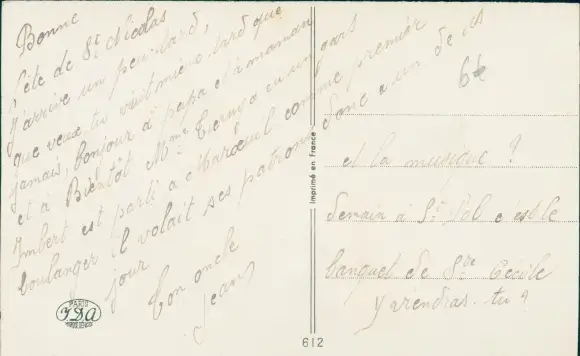 Bonne
fête de St Nicolas
J'arrive un peu tard,
que veux tu vaut mieux tard que
jamais, bonjour à papa et à maman
et à Bientôt Mme a eu un gars
Imbert est parti a comme premier
boulanger il volait ses patrons donc a un de ces
jour
ton oncle
Jean
6f
et la musique ?
demain à St Pol c est le
banquet de Ste Cécile
y viendras-tu ?
Imprimé en France
PARIS
612